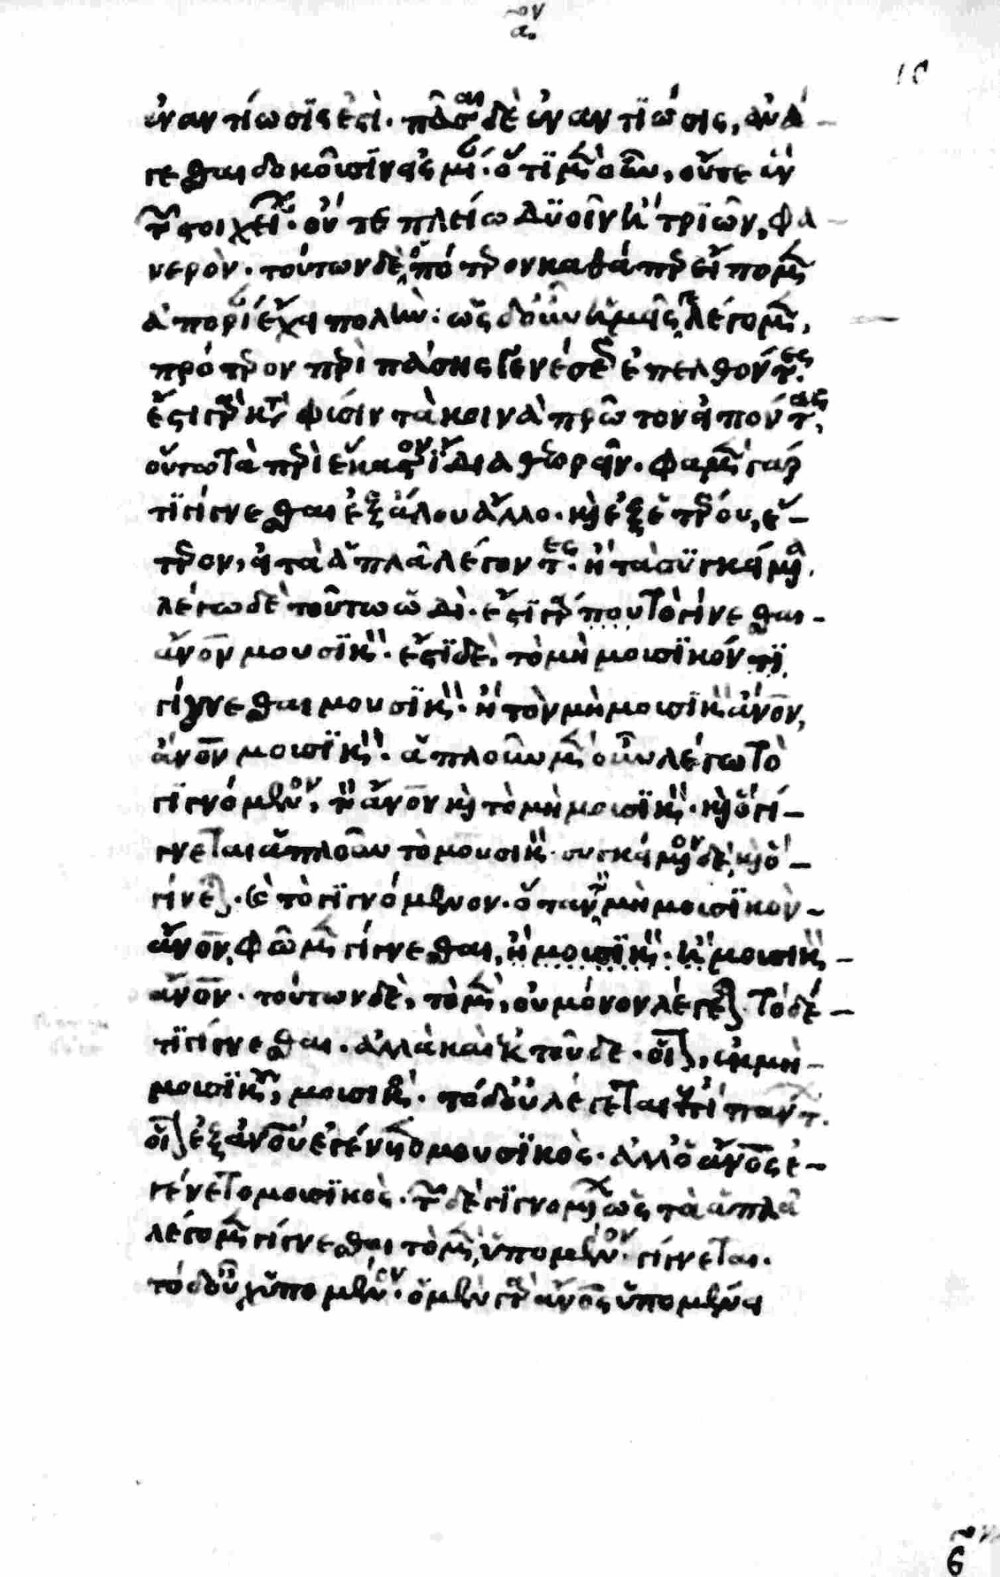 ἐναντίωσίς ἐστι· πᾶσαι δὲ ἐναντιώσις, ἀνά-
γεσθαι δοκοῦσιν εἰς μίαν· ὅτι μὲν οὖν, οὔτε ἓν
τὸ στοιχεῖον· οὔτε πλείω δυοῖν ἢ τριῶν, φα-
νερόν· τούτων δὲ, πότερον καθάπερ εἴπομεν
ἀπορίαν ἔχει πολλήν: ὧδ' οὖν ἡμεῖς λέγομεν,
πρότερον περὶ πάσης γενέσεως ἐπελθόντες.
ἔστι γὰρ κατὰ φύσιν τὰ κοινὰ πρῶτον εἰπόντας,
οὕτω τὰ περὶ ἕκαστον ἴδια θεωρεῖν. φαμὲν γὰρ
γίγνεσθαι ἐξ ἄλλου ἄλλο· καὶ ἐξ ἑτέρου, ἕ-
τερον, ἢ τὰ ἁπλᾶ λέγοντες· ἢ τὰ συγκείμενα.
λέγω δὲ τοῦτο ὡδί· ἔστι γάρ που τὸ γίνεσθαι
ἄνον μουσικόν· ἔστι δὲ, τὸ μὴ μουσικόν τι
γίγνεσθαι μουσικόν· ἢ τὸν μὴ μουσικὸν ἄνον,
ἄνον μουσικόν· ἁπλοῦν μὲν οὖν λέγω τὸ
γιγνόμενον, τὸν ἄνον καὶ τὸ μὴ μουσικόν· καὶ ὃ γί-
γνεται ἁπλοῦν τὸ μουσικόν· συγκείμενον δὲ, καὶ ὃ
γίνεται· καὶ τὸ γιγνόμενον· ὅταν τὸν μὴ μουσικὸν
ἄνον, φῶμεν γίγνεσθαι, ἢ μουσικόν· ἢ μουσικὸν
ἄνον· τούτων δὲ, τὸ μὲν, οὐ μόνον λέγεται τόδε
τι γίγνεσθαι· ἀλλὰ καὶ ἐκ τοῦδε· οἷον, ἐκ μὴ
μουσικοῦ, μουσικός· τὸ δ' οὐ λέγεται ἐπὶ παντ.
οἷον ἐξ ἀνου ἐγένετο μουσικός· ἀλλ' ὁ ἄνος ἐ-
γένετο μουσικός· τῶν δὲ γιγνομένων ὡς τὰ ἁπλᾶ
λέγομεν γίγνεσθαι τὸ μὲν, ὑπομένον γίγνεται.
τὸ δ' οὐχ ὑπομένον· ὁ μὲν γὰρ ἄνος ὑπομένει